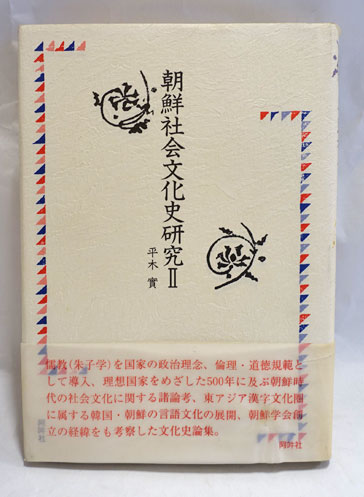 朝鮮社会文化史研究Ⅱ
平木 實
儒教(朱子学)を国家の政治理念、倫理・道徳規範と
して導入、理想国家をめざした500年に及ぶ朝鮮時
代の社会文化に関する諸論考、東アジア漢字文化圏
に属する韓国・朝鮮の言語文化の展開、朝鮮学会創
立の経緯をも考察した文化史論集。
阿吽社
阿吽社